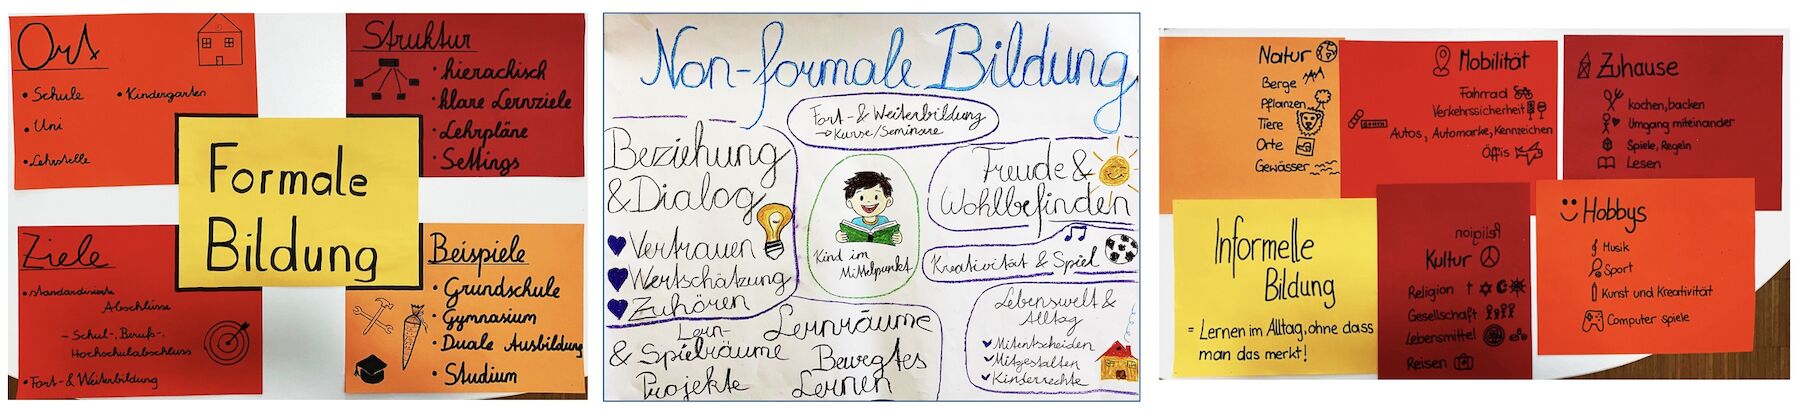 Ort
• Schule
• Kindergarten
• Uni
• Lehrstelle
Struktur
• hierachisch
• klare Lernziele
• Lehrpläne
• Settings
Formale
Bildung
Ziele
• standardisierte
Abschlüsse
- Schul-, Berufs-,
Hochschulabschluss
• Fort- & Weiterbildung
Beispiele
• Grundschule
• Gymnasium
• Duale Ausbildung
• Studium
Non-formale Bildung
Fort- & Weiterbildung
→ Kurse/Seminare
Beziehung
& Dialog
Vertrauen
Wertschätzung
Zuhören
Kind im
Mittelpunkt
Freude &
Wohlbefinden
Kreativität & Spiel
Lern-
& Spielräume
Projekte
Lernräume
Bewegtes
Lernen
Lebenswelt &
Alltag
✓ Mitentscheiden
✓ Mitgestalten
✓ Kinderrechte
Natur
Berge
Pflanzen
Tiere
Orte
Gewässer
Mobilität
Fahrrad
Verkehrssicherheit
Autos, Automarke, Kennzeichen
Öffis
Zuhause
kochen, backen
Umgang miteinander
Spiele, Regeln
Lesen
Informelle
Bildung
= Lernen im Alltag, ohne dass
man das merkt!
Religion
Kultur
Religion
Gesellschaft
Lebensmittel
Reisen
Hobbys
Musik
Sport
Kunst und Kreativität
Computer spiele